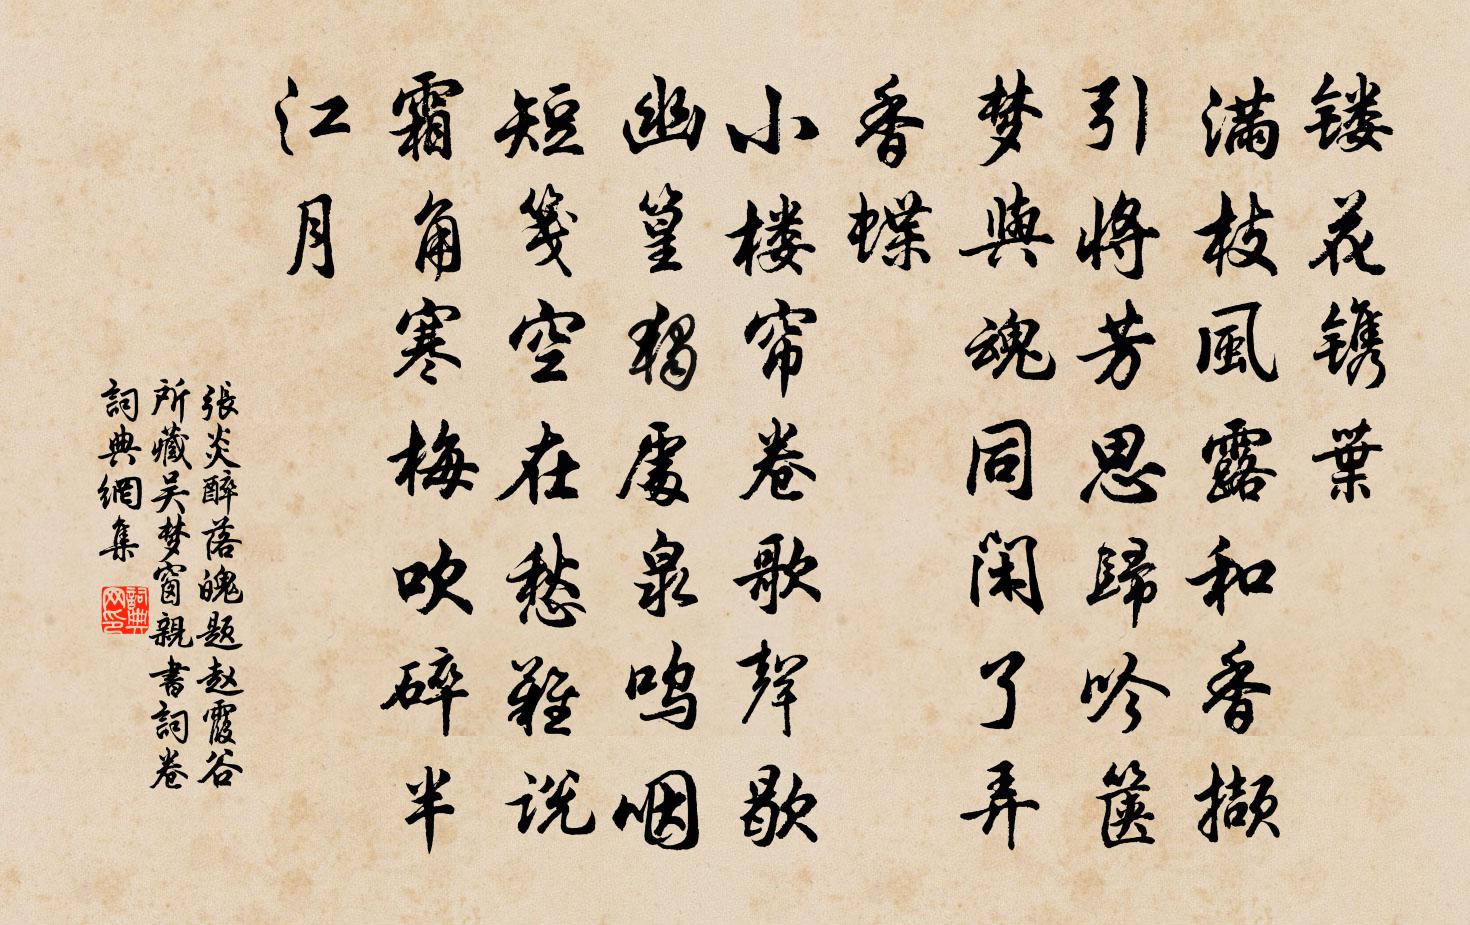 镂花镌葉
满枝風露和香擷
引将芳思歸吟箧
梦與魂同闲了弄
香蝶
小楼帘卷歌聲歇
幽篁獨處泉鸣咽
短笺空在愁難说
霜角寒梅吹碎半
江月
張炎醉落魄题赵霞谷
所藏吴梦窗親書詞卷
詞典網集
詞典网印